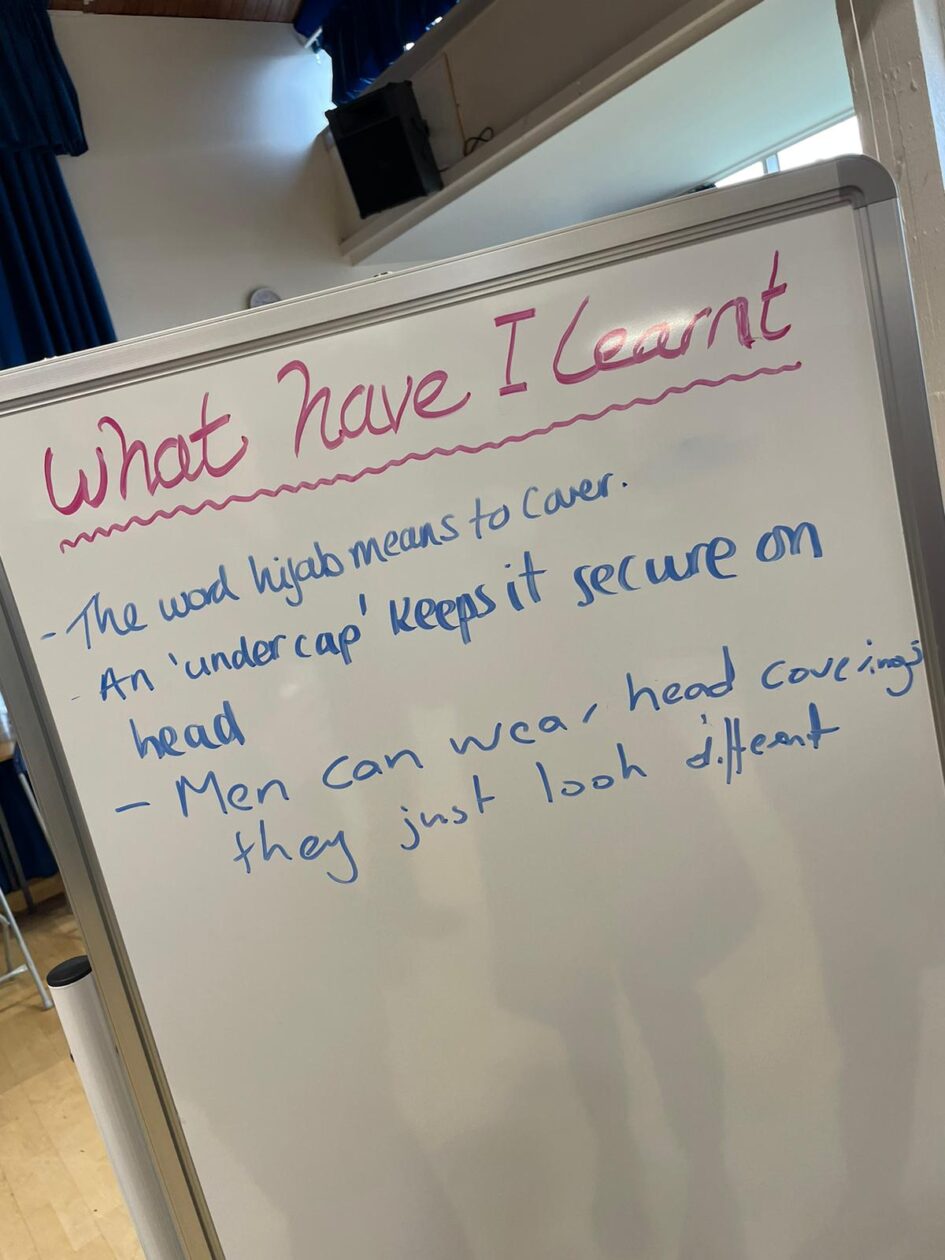 What have I learnt
- The word hijab means to cover.
- An 'under cap' keeps it secure on
head
- Men can wear head coverings
they just look different